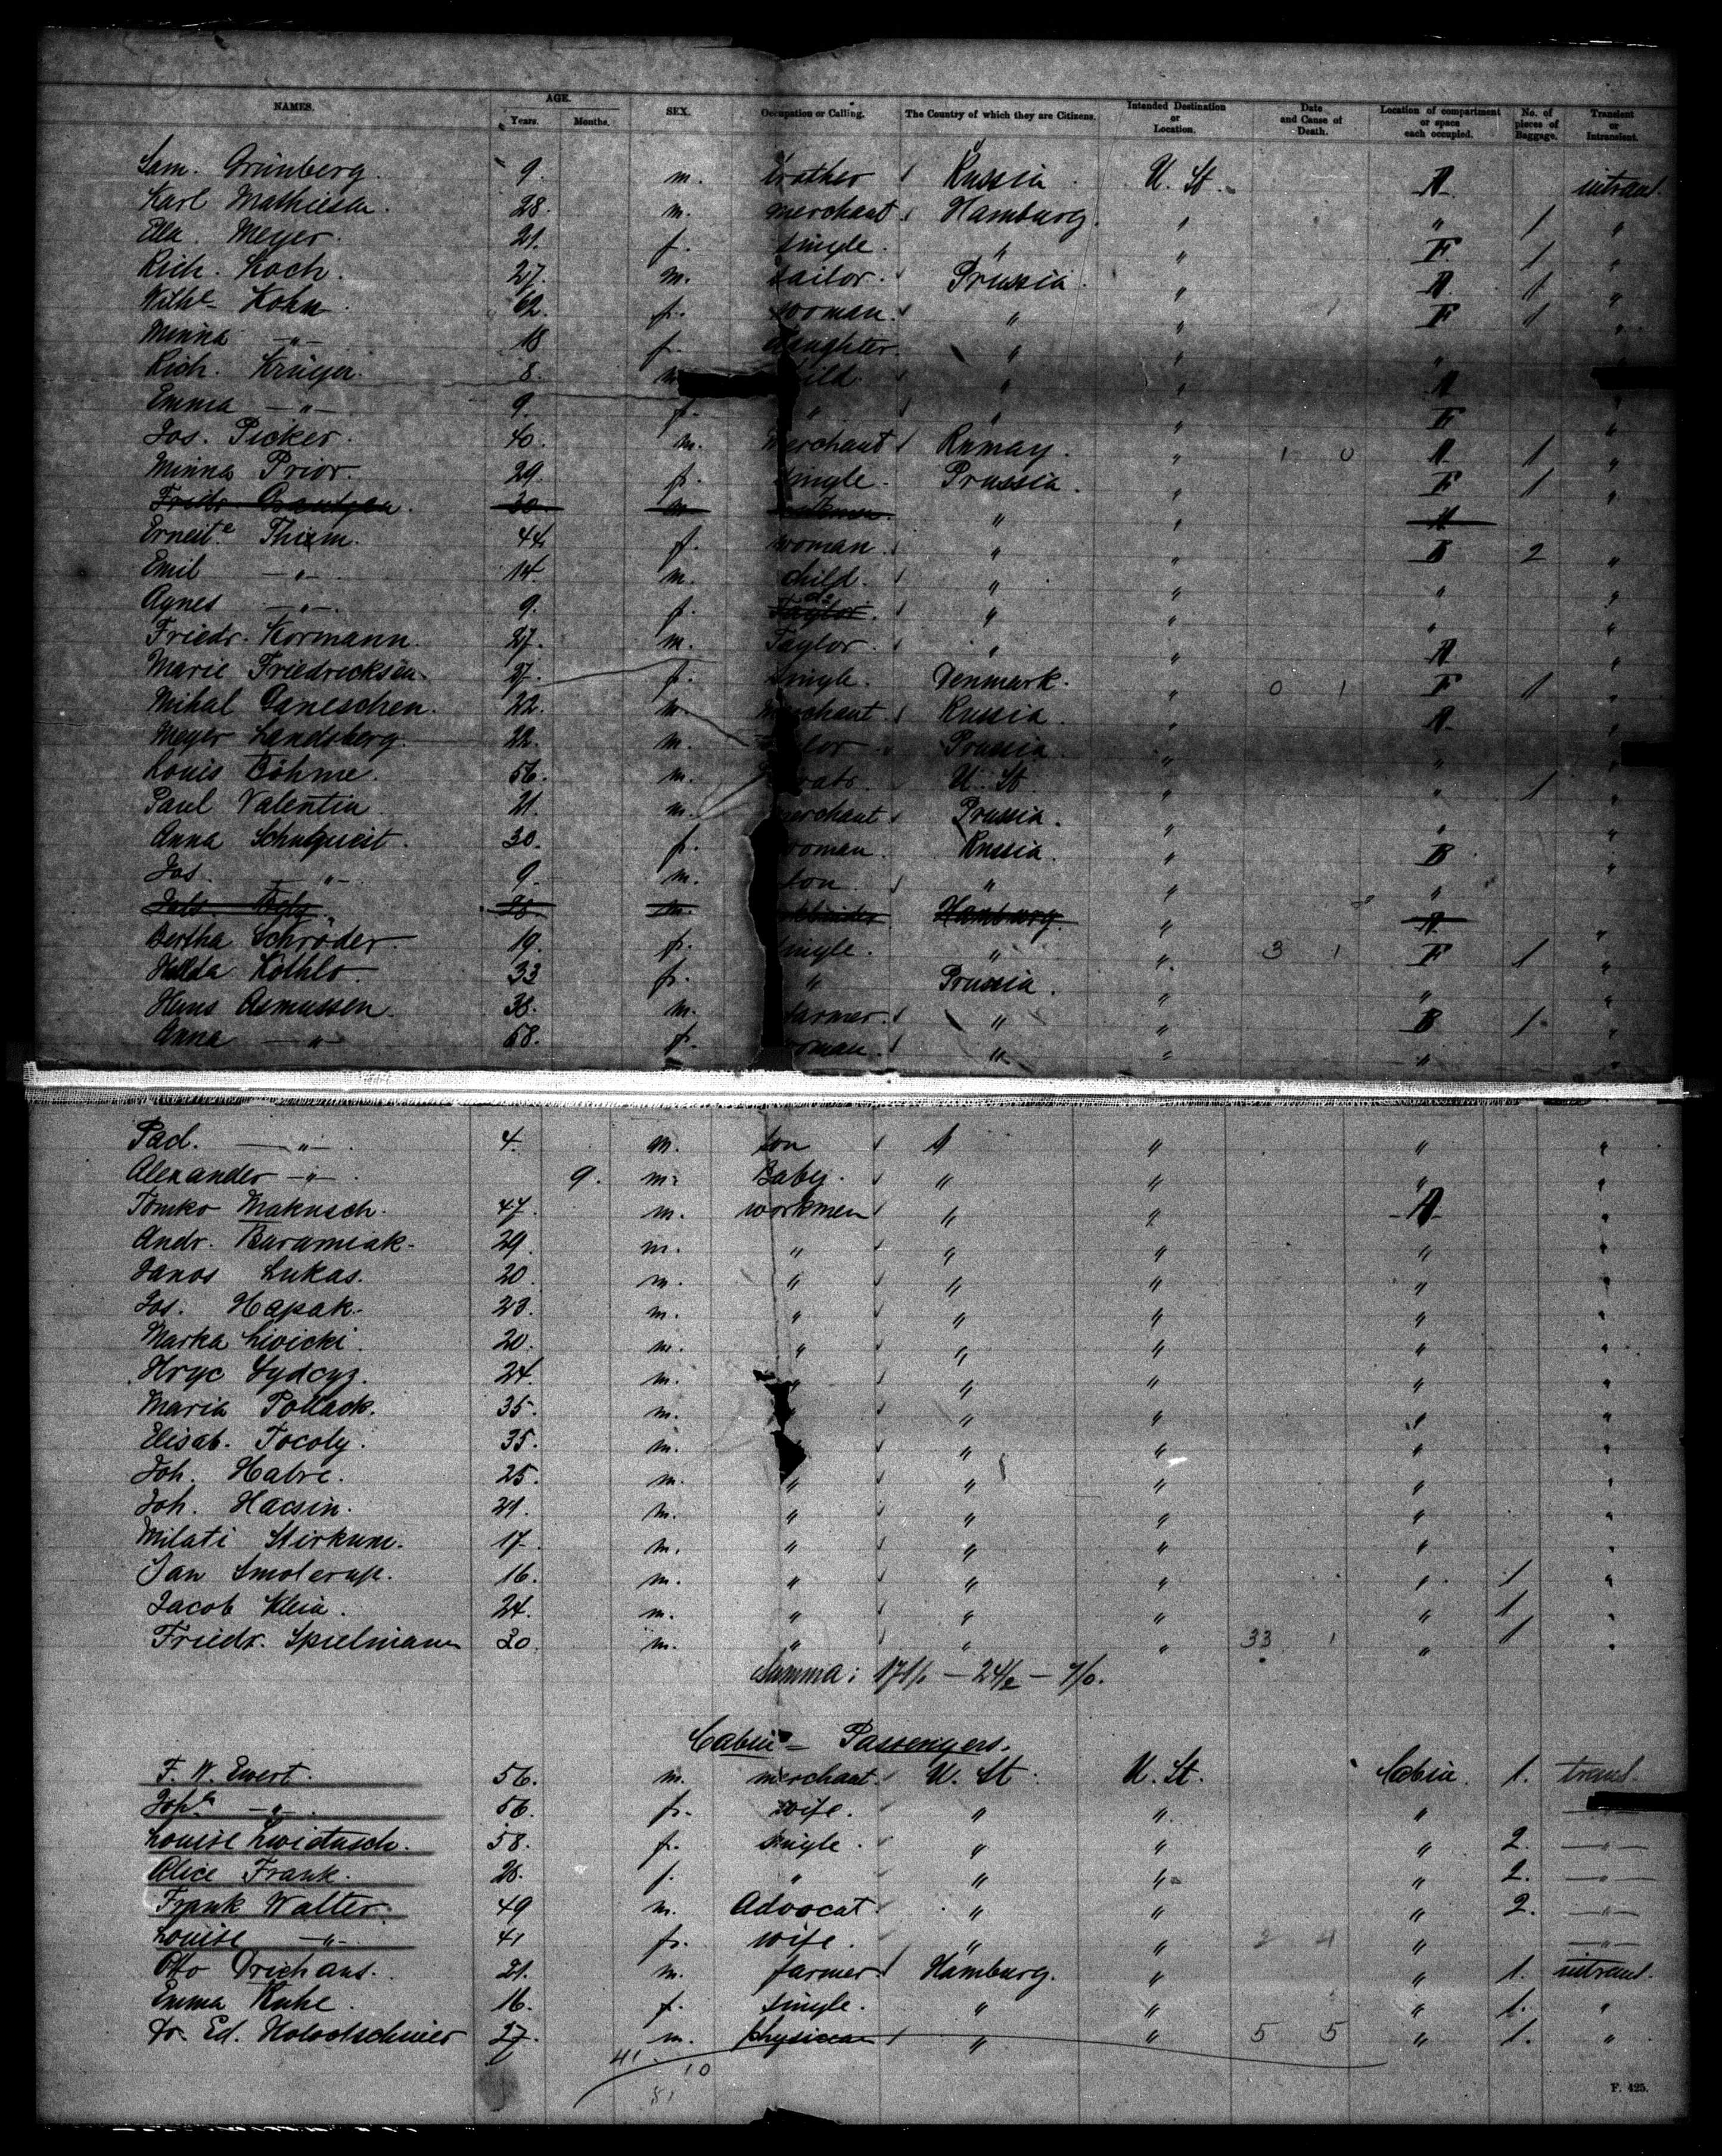 NAMES. AGE. SEX. Occupation or Calling. The Country of which they are Citizens. Intended Destination or Location. Date and Cause of Death. Location of compartment or space each occupied. No. of pieces of Baggage. Transient or Intransient.
Years. Months.
Sam. Grünberg. 9. m. brother Russia U. St. A intrans.
Karl Mathiesen 28. m. merchant. Hamburg. " " 1 "
Ella. Meyer. 21. f. single. " " F 1 "
Rich. Koch. 27. m. sailor. Prussia. " A 1 "
Wilhe Kohn 62. f. woman. " " F 1 "
Minna —"— 18 f. daughter. " " " "
Rich. Krüger. 8. m. child. " " A "
Emma —"— 9. f. " " " F "
Jos. Picker. 40. m. merchant Rumay. " 1 0 A 1 "
Minna Prior. 29. f. single. Prussia. " F 1 "
Friedr. 30 m " " A
Erneste Thiem. 44 f. woman. " " B 2 "
Emil —"— 14. m. child. " " " "
Agnes —"— 9. f. Taylor. do " " " "
Friedr. Kormann. 27. m. Taylor. " " A "
Marie Friedricksen. 27. f. single. Denmark. " 0 1 F 1 "
Mihal Ganeschen. 22. m. merchant Russia. " A "
Meyer Landsberg. 22. m. Prussia. " " "
Louis Böhme. 56. m. U. St. " " 1 "
Paul Valentin. 21. m. merchant Prussia. " " "
Anna 30. f. woman. Russia. " B "
Jos. —"— 9. m. son. " " " "
28 m. Hamburg. " A "
Bertha Schröder. 19. f. single. " " 3 1 F 1 "
Hulda Köthlo 33 f. " Prussia. " " "
Hans Asmussen. 38. m. farmer. " " B 1 "
Anna —"— 58. f. woman. " " " "
Pad. —"— 4. m. son " " "
Alexander —"— 9. m. Baby. " " " "
Tomko Makusch. 47. m. workmen " " A "
Andr. Baramiak. 29. m. " " " " "
Janos Lukas. 20. m. " " " " "
Jos. Hapak. 23. m. " " " " "
Marka Liwicki. 20. m. " " " " "
Hryc Gydcyz. 24. m. " " " " "
Maria Pollack. 35. m. " " " "
Elisab. Tocoly. 35. m. " " " "
Joh. Habre. 25. m. " " " " "
Joh. Hacsin. 21. m. " " " " "
Milati Stirkum. 17. m. " " " " "
Jan Smolerap. 16. m. " " " " 1 "
Jacob Klein. 24. m. " " " " 1 "
Friedr. Spielmann 30. m. " " " 33 1 " 1 "
Summa: 171/1 — 24/2 — 7/0.
Cabin — Passengers.
F. W. Ewert. 56. m. merchant. U. St. U. St. Cabin. 1. trans.
Johe —"— 56. f. wife. " " " —"—
Louise 58. f. single. " " " 2. —"—
Alice Frank. 28. f. " " " " 2. —"—
Frank Walter. 49 m. Advocat. " " " 2. —"—
Louise —"— 41 f. wife. " " 2 4 " —"—
Otto Drichaus. 21. m. farmer. Hamburg. " " 1. intrans.
Emma Kuhl. 16. f. single. " " " 1. "
Dr. Ed. Holootschnier 27. m. physician " " 5 5 " 1. "
41
10
51
F. 425.